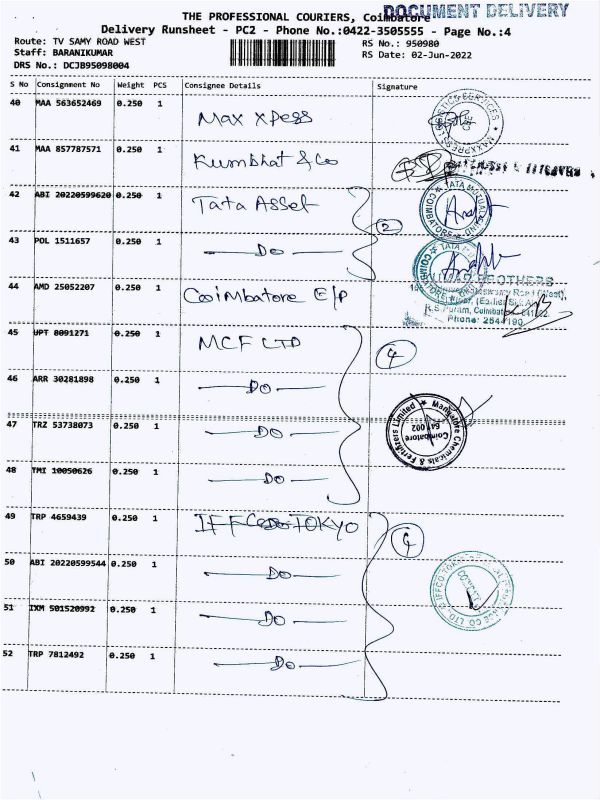 DOCUMENT DELIVERY
THE PROFESSIONAL COURIERS, Coimbatore
Delivery Runsheet - PC2 - Phone No.:0422-3505555 - Page No.:4
Route: TV SAMY ROAD WEST RS No.: 950980
Staff: BARANIKUMAR RS Date: 02-Jun-2022
DRS No.: DCJB95098004
S No Consignment No Weight PCS Consignee Details Signature
40 MAA 563652469 0.250 1 Max Xpess
41 MAA 857787571 0.250 1 Kumbhat & Co
42 ABI 20220599620 0.250 1 Tata Asset
2
43 POL 1511657 0.250 1 — Do —
44 AMD 25052207 0.250 1 Coimbatore
BROTHERS
Puram, Coimbat
Phone: 2544190
45 UPT 8091271 0.250 1 MCF LTD
4
46 ARR 30281898 0.250 1 — Do —
47 TRZ 53738073 0.250 1 — Do —
Mangalore Chemicals & Fertilizers Limited
Coimbatore
641 002
48 TMI 10050626 0.250 1 — Do —
49 TRP 4659439 0.250 1 IFFCO TOKYO
4
50 ABI 20220599544 0.250 1 — Do —
51 IXM 501520992 0.250 1 — Do —
52 TRP 7812492 0.250 1 — Do —